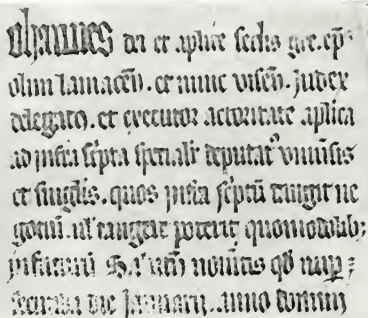 Johannes dei et aplice sedis gre. ep̄
olim lamaceñ. et nunc viseñ. Judex
delegatꝰ. et executor actoritate aplica
ad infra sc̄pta spēalit̄ deputatꝰ vniuīsis
et singlis. quos infra sc̄ptū tangit ne
gociū. ul' tangere poterit quomodolib;
infuturū Sal'utē nouītis qd nup;
secunda die Januarij. anno domini